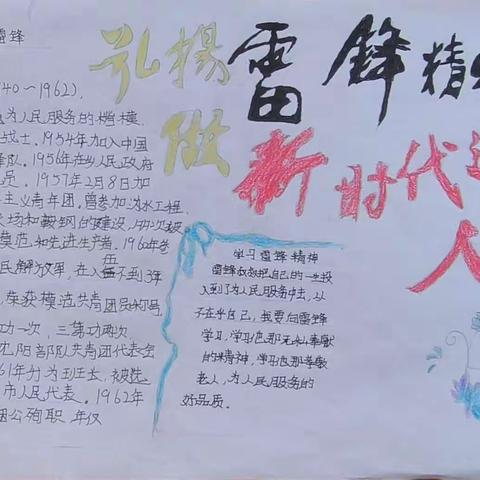 雷锋
弘揚雷鋒精
做新时代
人
40～1962).
为人民服务的楷模
战士. 1954年加入中国
队. 1956年在乡人民政府
员. 1957年2月8日加
主义青年团. 曾参加沩水工程.
场和鞍钢的建设, 次被
模范和先进生产者. 1960年
民解放军, 在入伍不到3年
荣获模范共青团员称号,
功一次, 三等功两次
沈阳部队共青团代表会
61年升为班长, 被选
市人民代表. 1962年
因公殉职 年仅
学习雷锋精神
雷锋叔叔把自己的一生投
入到了为人民服务中去, 从
不在乎自己, 我要向雷锋
学习, 学习他那无私奉献
的精神, 学习他那尊敬
老人, 为人民服务的
好品质.